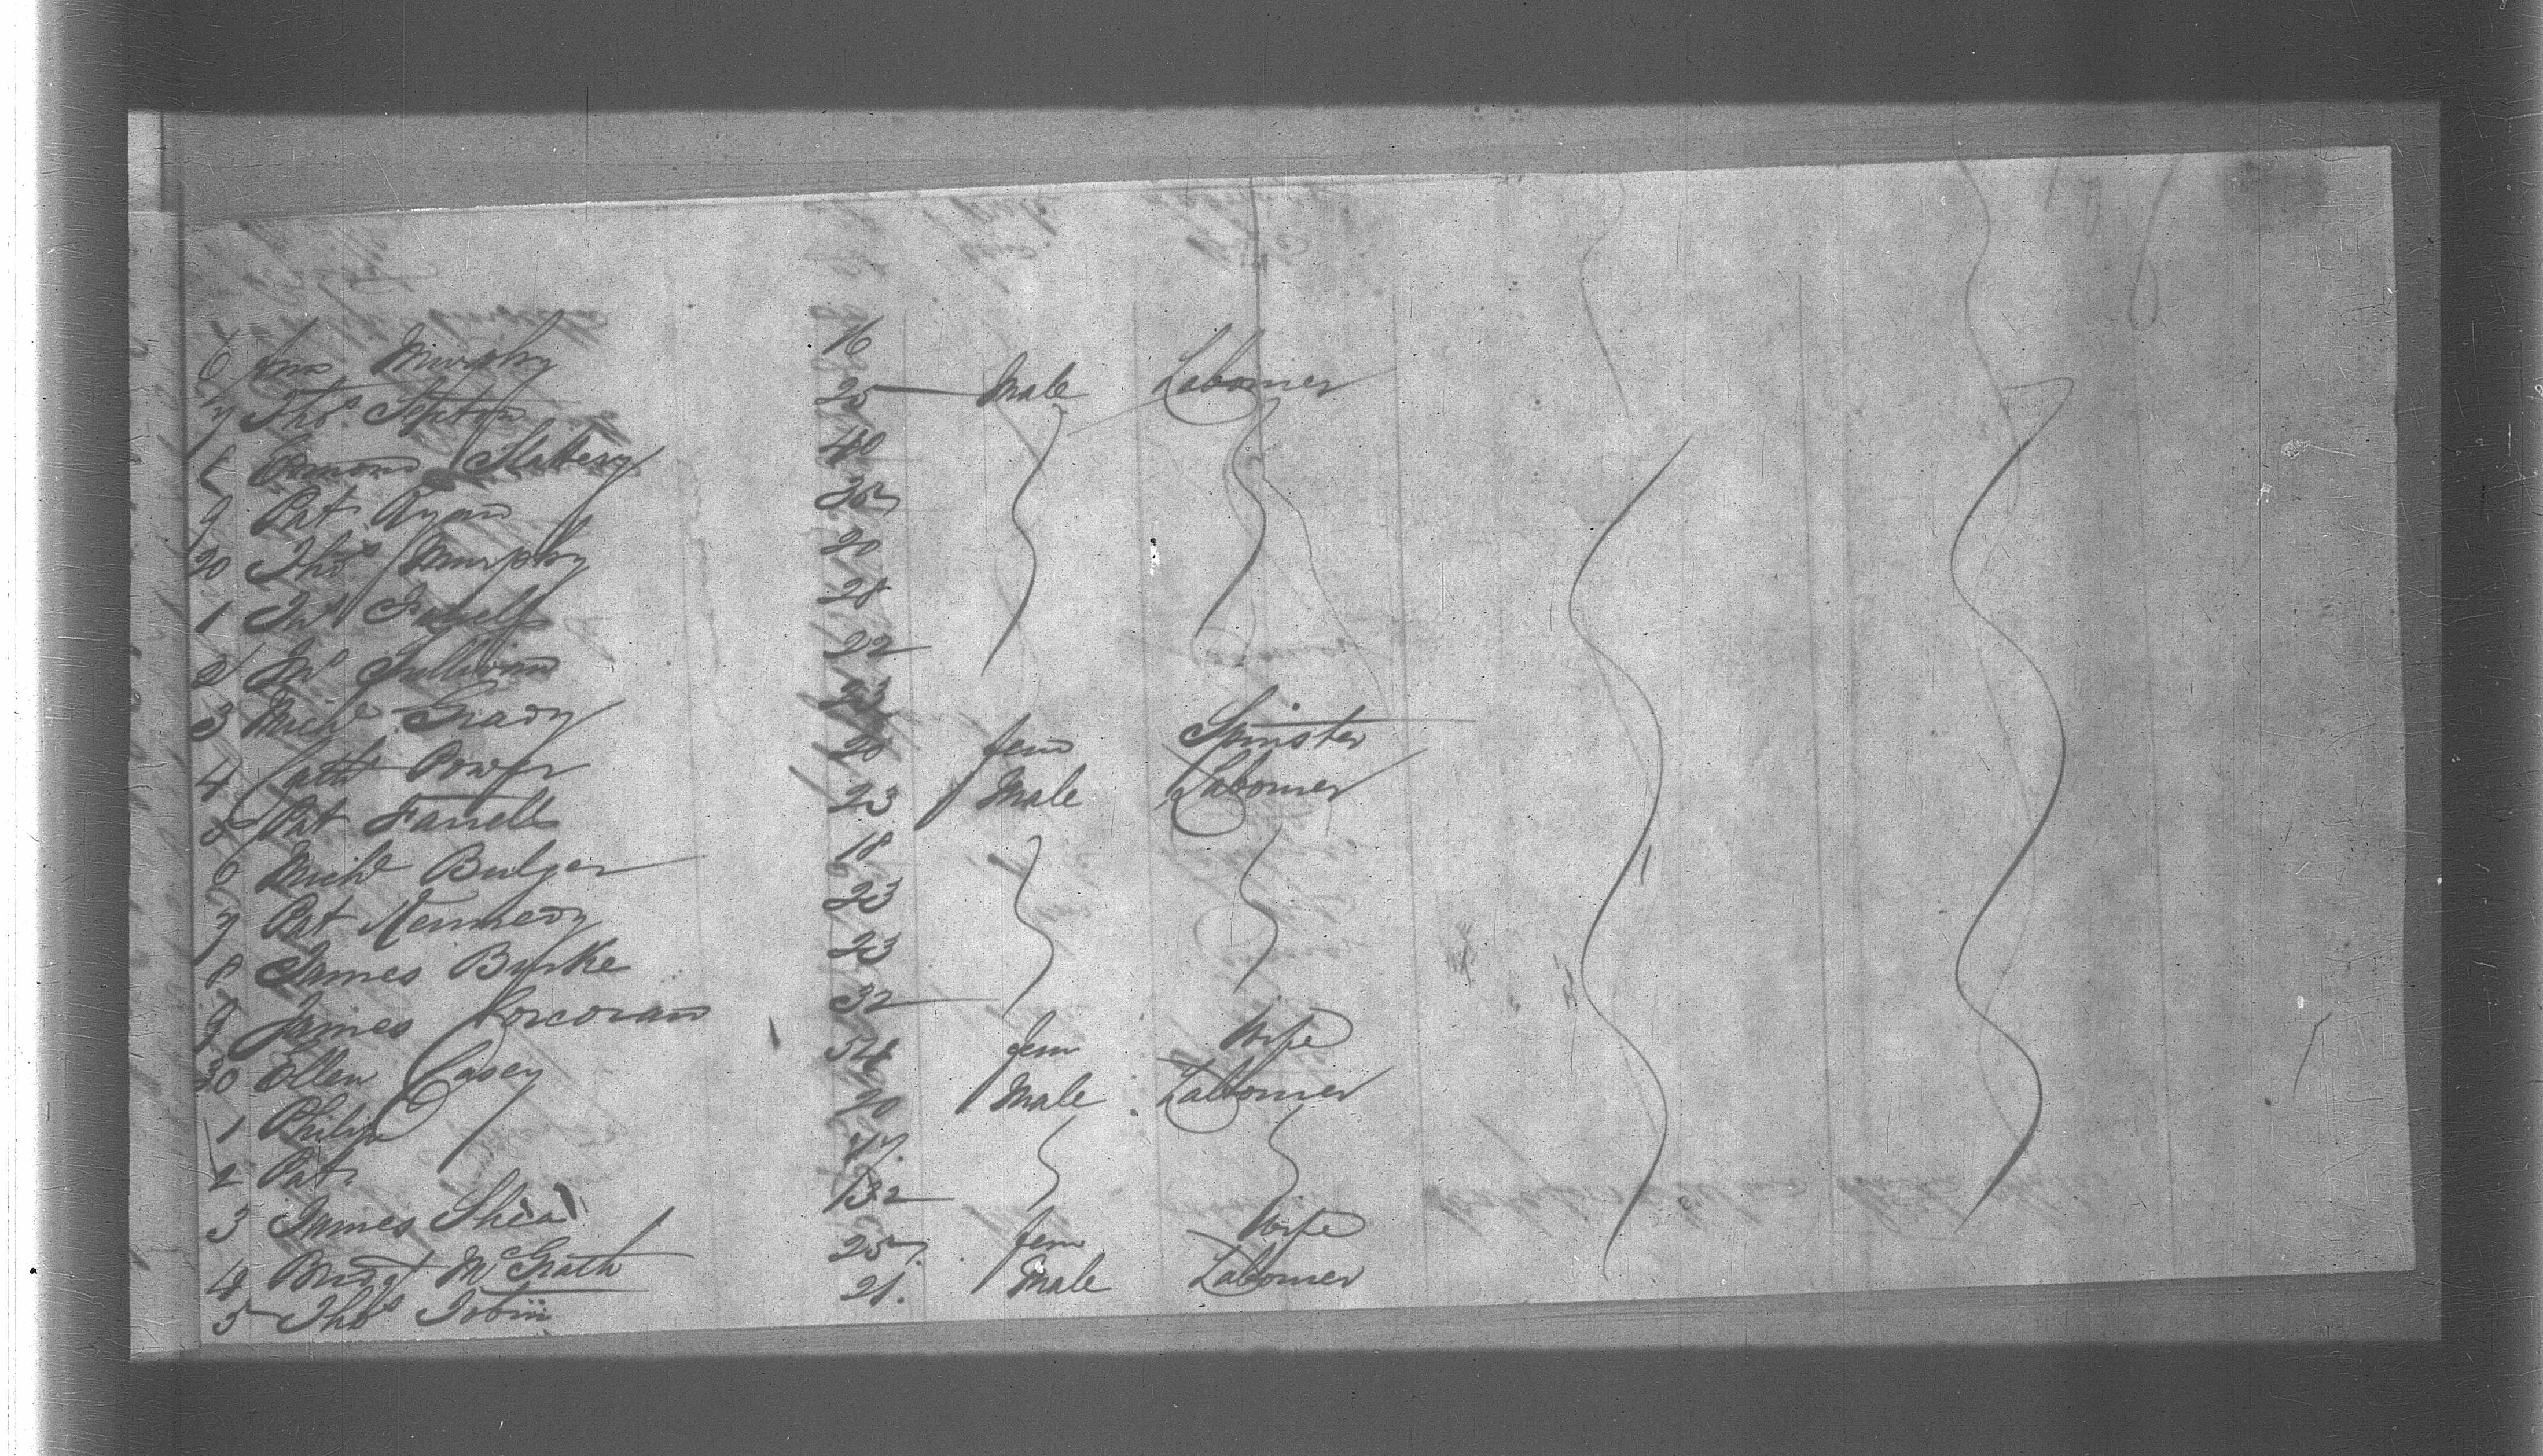 6 Jno Murphy 16
7 Thos. Sexton 25 Male Labourer
8 Edmond Slattery 40
9 Pat Ryan 35
20 Thos. Murphy 20
1 Farrell 28
2 Sullivan 22
3 Michl Grady 23
4 Cath Power 20 fem Spinster
5 Pat Farrell 23 Male Labourer
6 Michl Bulger 18
7 Pat Kennedy 23
8 James Burke 23
9 James Corcoran 32
30 Ellen Casey 54 fem Wife
1 Philip 20 Male Labourer
2 Pat
3 James Shea 32
4 Bridgt McGrath 25 fem Wife
5 Thos Tobin 21. Male Labourer